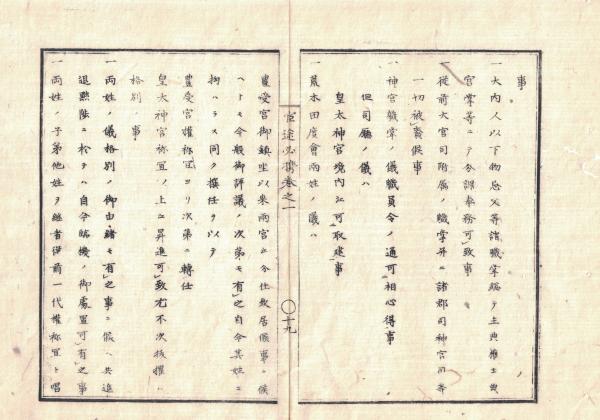 事
一大内人以下物忌父等諸職掌総テ主典権主典
宮掌等ニテ分課奉務可」致事
従前大宮司附属ノ職掌并ニ諸郡司神官同斉
一切被」廃候事
一神官職掌ノ儀職員令ノ通可」相心得事
但司庁ノ儀ハ
皇太神宮境内江可」取建事
一荒木田度會両姓ノ儀ハ
官途必携巻之一
〇十九
豊受宮御鎮坐以来両宮江分仕致居候事ニ候
ヘトモ今般御評議ノ次第モ有」之自今其姓ニ
拘ハラス同ク撰任ヲ以テ
豊受宮権祢宜ヨリ次第ニ轉任
皇太神宮祢宜ノ上江昇進可」致尤不次抜擢ハ
格別ノ事
一両姓ノ儀格別ノ御由緒モ有」之事ニ候ヘ共進
退黙陟ニ於テハ自今臨機ノ御處置可」有」之事
一両姓ノ子弟他姓ヲ継者従前一代権祢宜ト唱